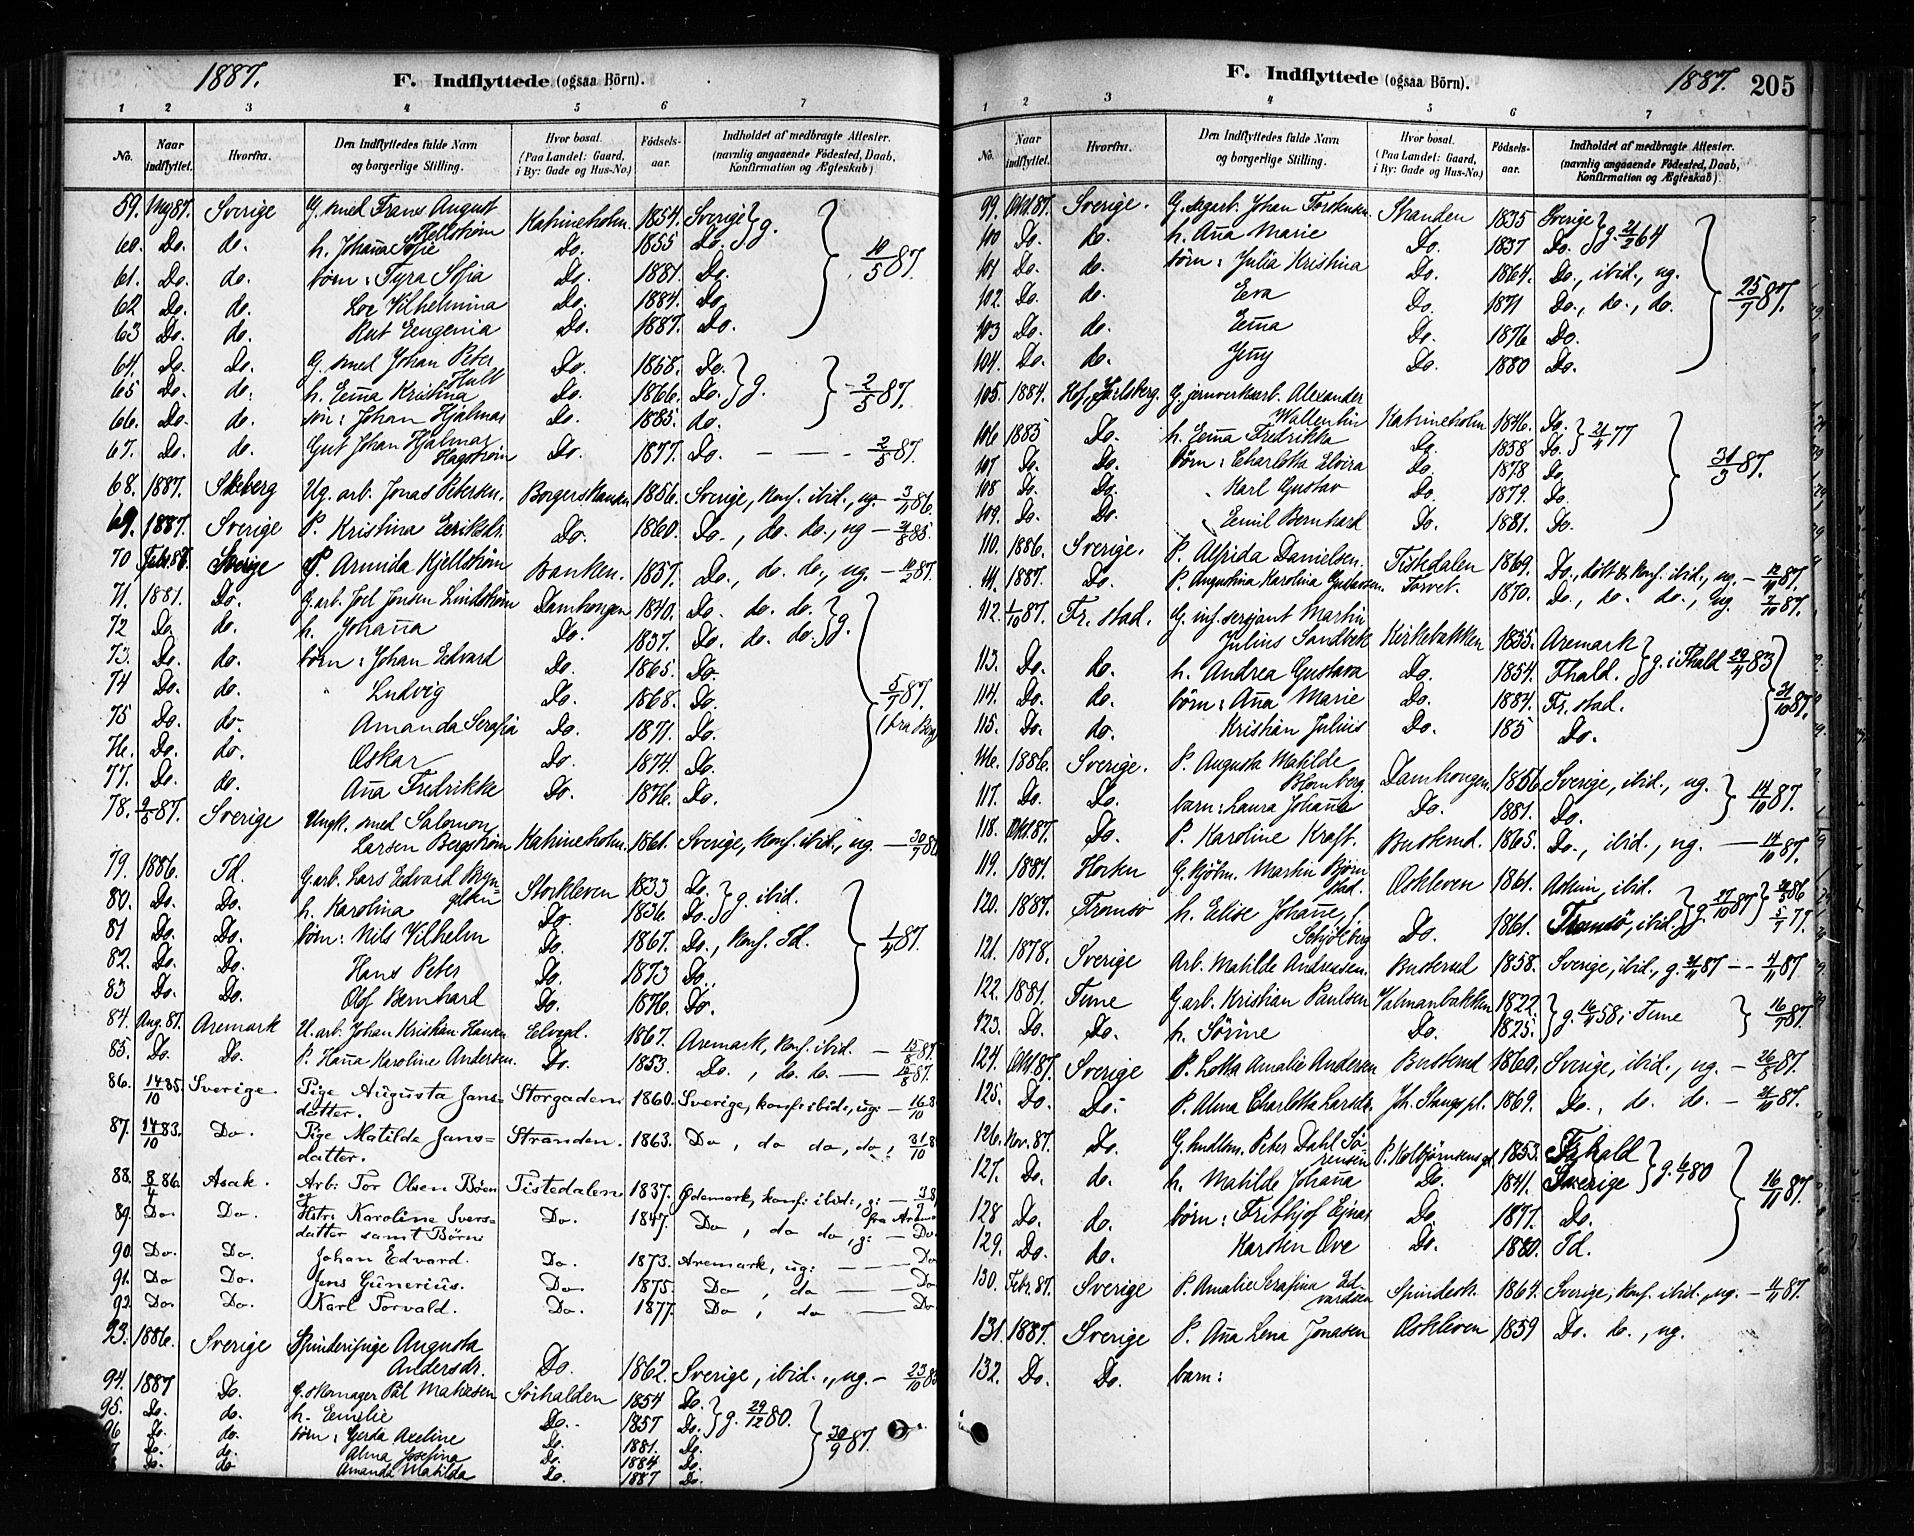 1887.
F. Indflyttede (ogsaa Börn).
1 2 3 4 5 6 7
No. Naar indflyttet. Hvorfra. Den Indflyttedes fulde Navn og borgerlige Stilling. Hvor bosat. (Paa Landet: Gaard, i By: Gade og Hus-No.) Födsels-aar. Indholdet af medbragte Attester. (navnlig angaaende Födested, Daab, Konfirmation og Ægteskab)
59. 87. Sverige G. smed Frans August Kjellström Katrineholm 1854. Sverige } g.
60. Do. do. h. Johanna Sofie Do. 1855 do.
61. Do. do. børn: Tyra Sofia do. 1881. Do. 10/5 87.
62 Do. do. Vilhelmina Do. 1884. Do.
63 Do. do. Rut Eugenia Do. 1887. Do.
64. Do. Do. G. smed Johan Peter Hult Do. 1858. Do. } g.
65 Do. do. h. Emma Kristina Do. 1866. Do. 2/5 87.
66. Do. do. søn: Johan Hjalmar Do. 1885. do.
67. Do. do. Gut Johan Hjalmar Hagstrøm Do. 1877. Do. — — 2/5 87.
68. 1887. Skeberg Ug. arb. Jonas Petersen. Borgerskansen 1856. Sverige, konf. ibid., ug. — 86.
69. 1887. Sverige P. Kristina Eriksdr. Do. 1860. Do., do. do., ug — 85.
70 Febr. 87. Sverige P. Armida Kjellstrøm Banken. 1837. Do., do. do., ug. — 87.
71. 1881. Do. G. arb. Joel Jonsen Lindstrøm Damhougen 1840. Do. do. do. } g.
72 Do. do. h. Johanna Do. 1837. Do. do. do.
73. Do. do. børn: Johan Edvard Do. 1865. Do.
74 Do. do. Ludvig Do. 1868. Do. 5/7 87.
75 Do. do. Amanda Serafia Do. 1871. Do. (fra Berg
76. Do. do. Oskar Do. 1874. Do.
77. Do. do. Anna Fredrikke Do. 1876. Do.
78. 87. Sverige Ungk. smed Salomon Larsen Bergstrøm Katrineholm. 1861. Sverige, konf. ibid., ug. —
79. 1886. Id. G. arb. Lars Edvard Stockleven 1833 Do. } g. ibid.
80. Do. Do. h. Karolina Do. 1836. Do.
81 Do. Do. børn: Nils Vilhelm Do. 1867. Do., konf. Id. 87.
82. Do. Do. Hans Peter Do. 1873 Do.
83 Do. Do. Olof Bernhard Do. 1876. Do.
84. Aug. 87. Aremark U. arb. Johan Kristian Hansen Elvegd. 1867. Aremark, konf. ibid. — 15/8 87.
85. Do. Do. P. Hanna Karoline Andersen. Do. 1853. Do., do. do. — 87.
86. 14/10 85. Sverige. Pige Augusta Jansdatter. Storgaden 1860. Sverige, konf: ibid:, ug: — 16/10 8
87. 14/10 83. Do. Pige Matilde Jansdatter. Stranden. 1863. Do, do do, do, 31/10 8
88. 8/4 86. Asak. Arb: Tor Olsen Böen og Tistedalen 1837. Ödemark, konf: ibid:, g: —
89. Do. Do. Hstr: Karoline Iversdatter samt Börn: Do. 1847. Do, do do, g: — Do.
90. Do. Do. Johan Edvard. Do. 1873. Aremark, ug: — Do
91. Do Do. Jens Günerius. Do. 1875. Do, do — Do
92. Do. Do. Karl Torvald. Do. 1877. Do, do — Do
93. 1886. Sverige Spinderipige Augusta Andersdr. Do. 1862. Sverige, ibid., ug. — 23/10
94. 1887 Do. G. skomager Pål Matsesen Sørhalden 1854 Do. } g. 29/12 80.
95. Do. do. h. Emilie Do. 1857 Do.
96 Do. do. børn: Gerda Axeline Do. 1881. Do. 30/9 87.
Do. do. Alma Josefina Do. 1884 Do.
Do. do Amanda Matilda Do. 1887 Do.
F. Indflyttede (ogsaa Börn).
1887. 205
1 2 3 4 5 6 7
No. Naar indflyttet. Hvorfra. Den Indflyttedes fulde Navn og borgerlige Stilling. Hvor bosat. (Paa Landet: Gaard, i By: Gade og Hus-No.) Födsels-aar. Indholdet af medbragte Attester. (navnlig angaaende Födested, Daab, Konfirmation og Ægteskab)
99. Okt. 87. Sverige. G. Johan Torstensen Stranden 1835 Sverige } g. 64
100 Do. do. h. Anna Marie Do. 1837 Do.
101 Do. do. børn: Julia Kristina Do. 1864. Do., ibid., ug.
102. Do. do. Eva Do. 1871 Do., do., do. 25/7 87.
103 Do. do. Emma Do. 1876 Do.
104. Do. do. Jenny Do. 1880 Do.
105. 1884. Hof, Jarlsberg. G. jernverksarb. Alexander Wallentin Katrineholm 1846. Do. } 77
106 1885 Do. h. Emma Fredrikka Do. 1858 Do.
107 Do. Do. børn: Charlotta Elvira Do. 1878 Do. 31/3 87.
108 Do. Do. Karl Gustav Do. 1879. Do.
109. Do. Do. Emil Bernhard Do. 1881. Do.
110. 1886. Sverige. P. Alfrida Danielsen. Tistedalen 1869. Do., døbt & konf. ibid., ug. — 87.
111. 1887. Do. P. Augustina Karolina Gustavsen Torvet. 1870. Do., do. do., ug. 87.
112. 1/10 87. Fr. stad. G. inf. sergeant Martin Julius Sandbek Kirkebakken 1855. Aremark } g. i Fhald 29/4 83
113. Do. do. h. Andrea Gustava Do. 1854. Fhald.
114. Do. do. børn: Anna Marie Do. 1884. Fr. stad. 31/10 87.
115. Do. do. Kristian Julius Do. 185 Do.
116. 1886. Sverige. P. Augusta Matilde Blomberg Damhougen. 1856 Sverige, ibid., ug. } 14/10 87.
117. Do. Do. barn: Laura Johanne Do. 1881. Do.
118. Okt. 87. Do. P. Karoline Kraft. Busterud. 1865. Do., ibid., ug. — 14/10 87.
119. 1884. Horten G. kjøbm. Martin Bjørnstad. Oskleven 1861. Askim, ibid. } g. 27/10 87 86
120. 1887. Tromsø h. Elise Johanne f. Schjølberg Do. 1861. Tromsø, ibid. 77.
121. 1878. Sverige Arb. Matilde Andreasen. Busterud 1858. Sverige, ibid., g. 87 — 4/11 87
122. 1881. Tune G. arb. Kristian Paulsen Valmanbakken 1822. } g. 58 i Tune } 87.
123. Do. Do. h. Sørine Do. 1825.
124. Okt. 87. Sverige P. Lotta Amalie Andersen Busterud 1860. Sverige, ibid., ug. — 26/8 87.
125. Do. Do. P. Alma Charlotta Larsdr. Joh. Stangs pl. 1869. Do., do. do. — 87.
126. Nov. 87. Do. G. Peter Dahl Sørensen P. Kolbjørnsens gd. 1853. Frhald } g. 80
127. Do. do. h. Matilde Johanna Do. 1841. Sverige
128 Do. do. børn: Frithjof Ejnar Do. 1877. Do. 16/11 87.
129. Do. do. Karsten Ove Do. 1880. Id.
130. Febr. 87. Sverige P. Amalie Serafina Edvardsen Spindesk. 1864. Sverige, konf. ibid., ug. — 4/11 87.
131. 1887. Sverige P. Anna Lena Jonasen Oskleven 1859 Do. do., ug.
132. Do. Do. barn: